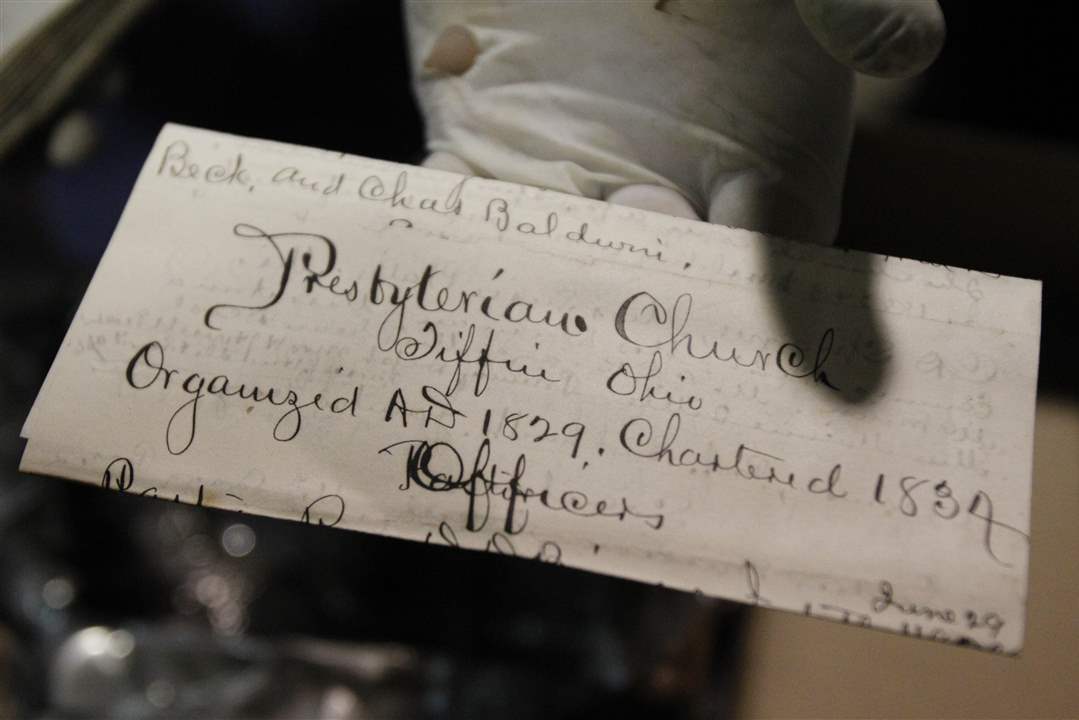 Beck, and Chas Baldwin,
Presbyterian Church
Tiffin Ohio
Organized AD 1829. Chartered 1834
Officers
June 29